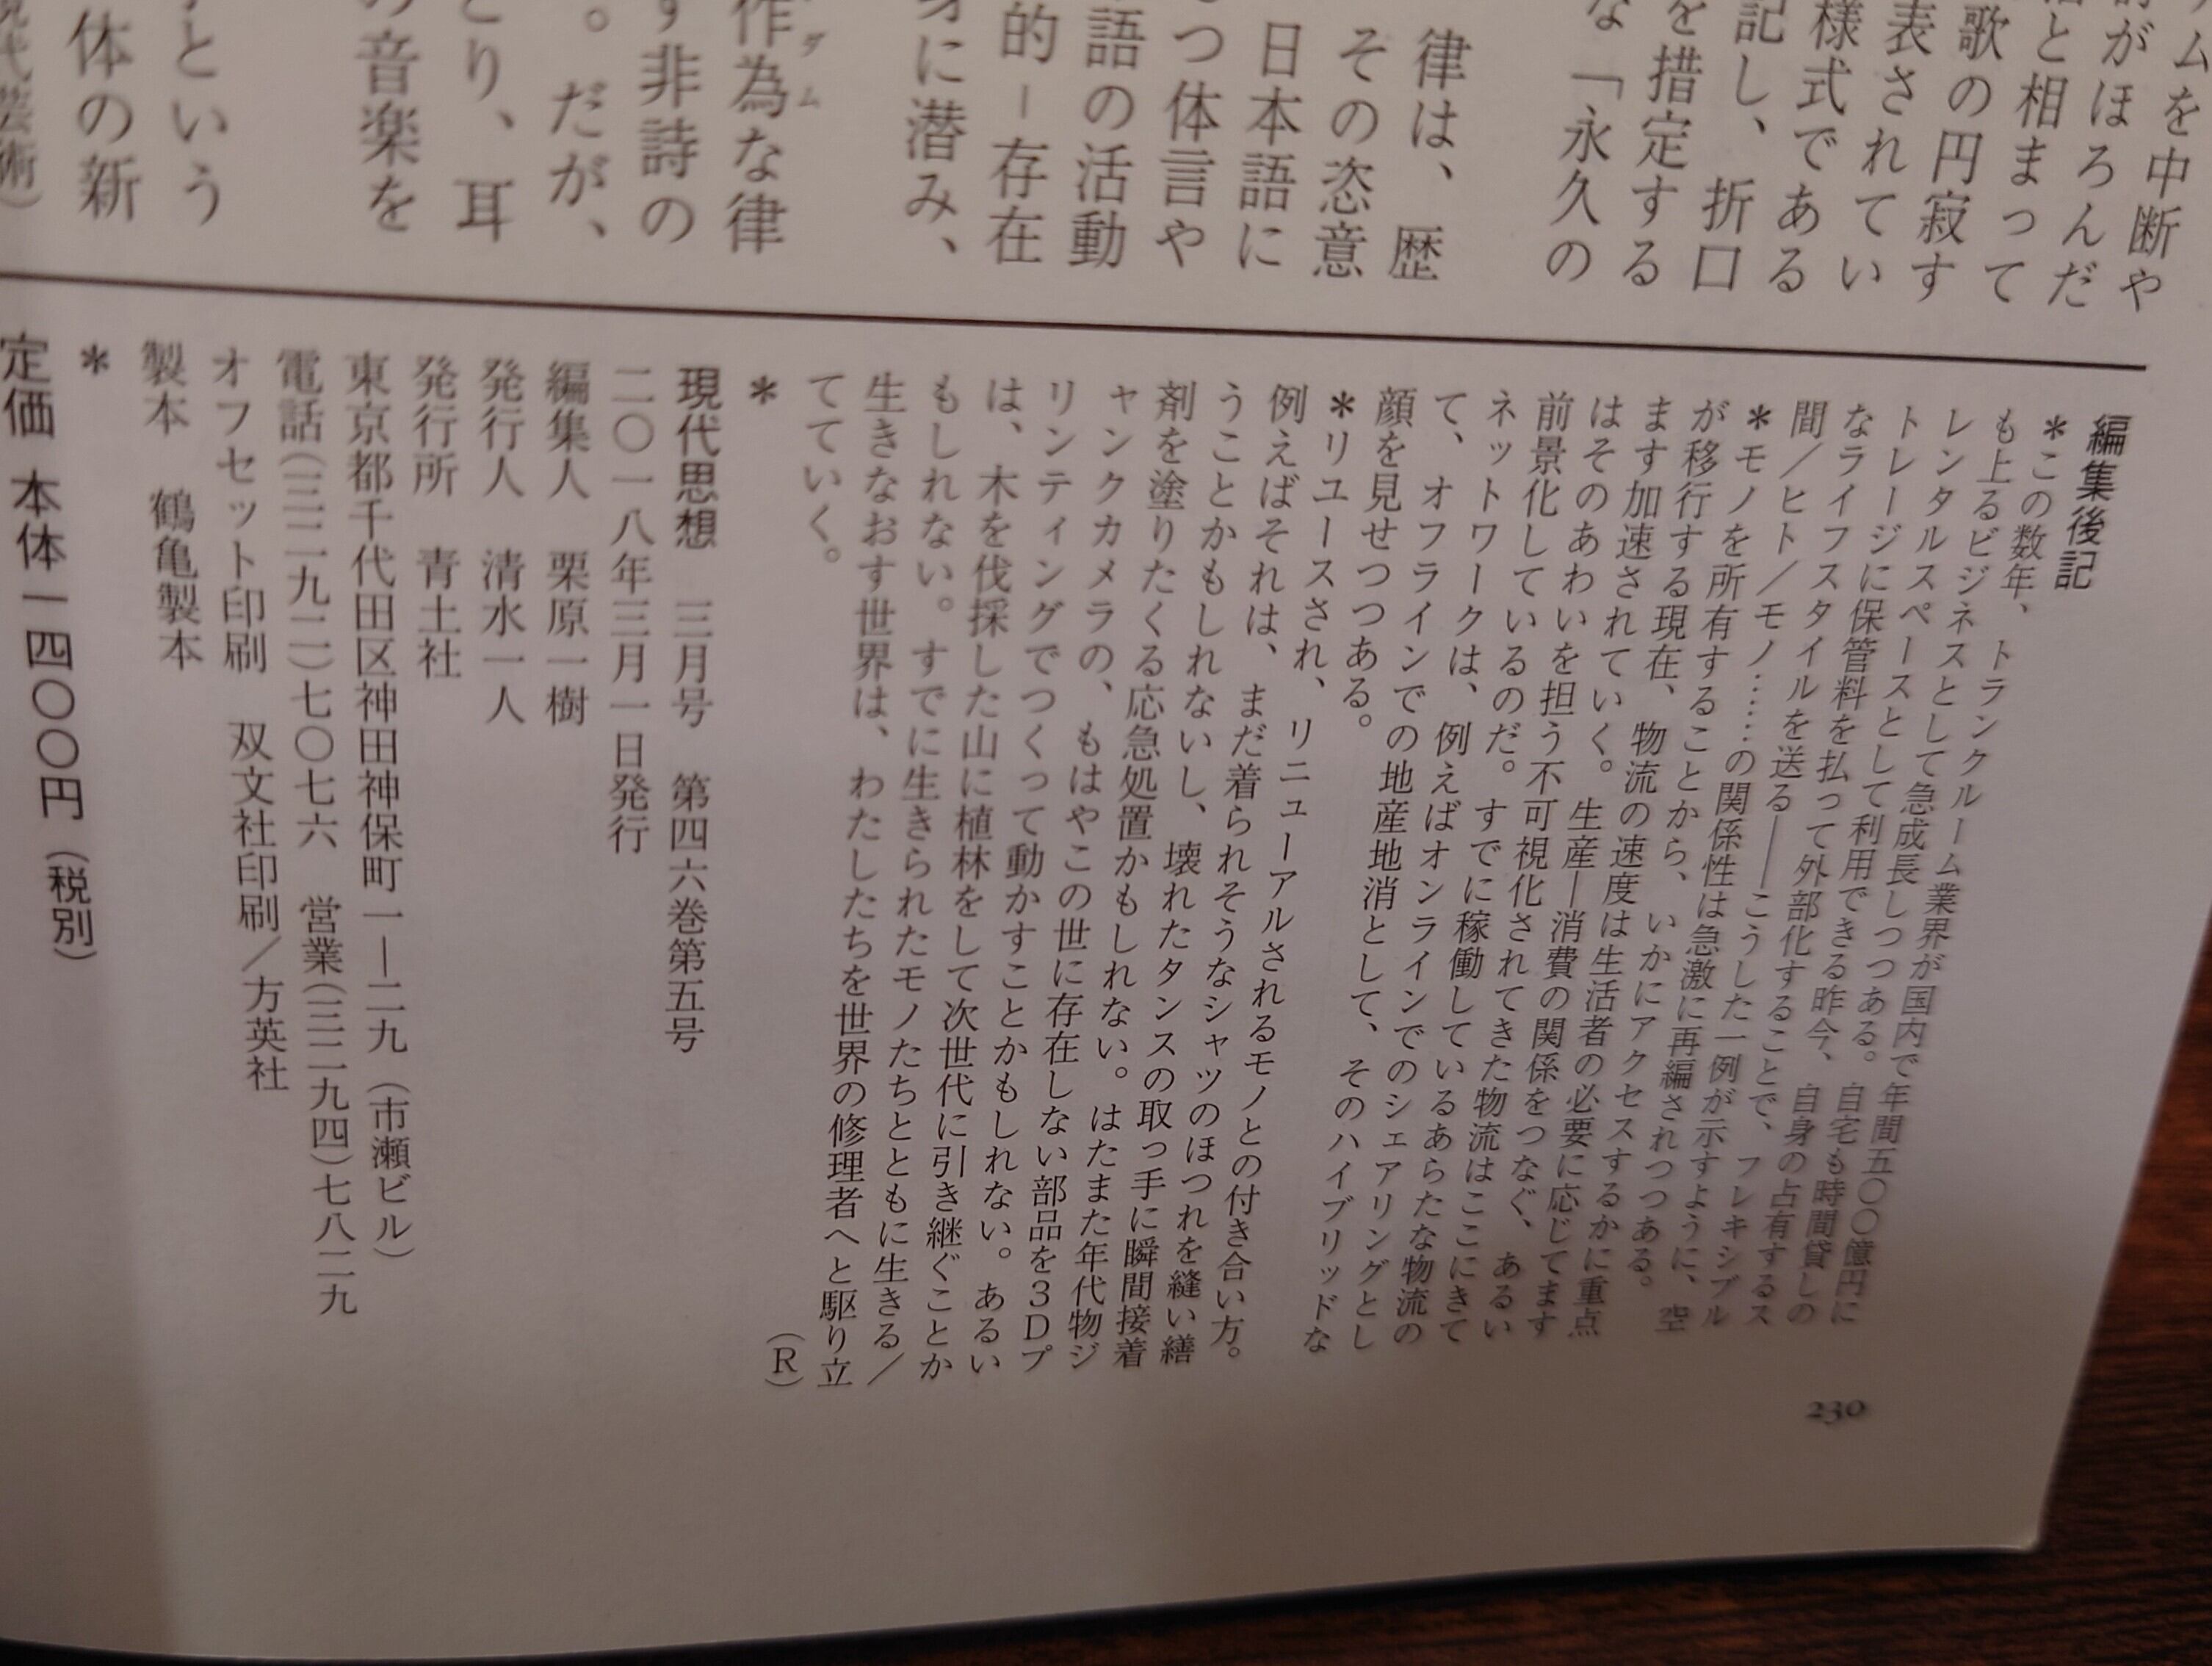 ムを中断や
がほろんだ
と相まって
歌の円寂す
表されてい
様式である
記し、折口
を措定する
な「永久の
律は、歴
その恣意
日本語に
つ体言や
語の活動
的-存在
に潜み、
作為な律
ダム
す非詩の
。だが、
とり、耳
の音楽を
という
体の新
現代芸術)
編集後記
＊この数年、トランクルーム業界が国内で年間五〇〇億円に
も上るビジネスとして急成長しつつある。自宅も時間貸しの
レンタルスペースとして利用できる昨今、自身の占有するス
トレージに保管料を払って外部化することで、フレキシブル
なライフスタイルを送る――こうした一例が示すように、空
間／ヒト／モノ……の関係性は急激に再編されつつある。
＊モノを所有することから、いかにアクセスするかに重点
が移行する現在、物流の速度は生活者の必要に応じてます
ます加速されていく。生産―消費の関係をつなぐ、あるい
はそのあわいを担う不可視化されてきた物流はここにきて
前景化しているのだ。すでに稼働しているあらたな物流の
ネットワークは、例えばオンラインでのシェアリングとし
て、オフラインでの地産地消として、そのハイブリッドな
顔を見せつつある。
＊リユースされ、リニューアルされるモノとの付き合い方。
例えばそれは、まだ着られそうなシャツのほつれを縫い繕
うことかもしれないし、壊れたタンスの取っ手に瞬間接着
剤を塗りたくる応急処置かもしれない。はたまた年代物ジ
ャンクカメラの、もはやこの世に存在しない部品を３Ｄプ
リンティングでつくって動かすことかもしれない。あるい
は、木を伐採した山に植林をして次世代に引き継ぐことか
もしれない。すでに生きられたモノたちとともに生きる／
生きなおす世界は、わたしたちを世界の修理者へと駆り立
てていく。
（Ｒ）
＊
現代思想 三月号 第四六巻第五号
二〇一八年三月一日発行
編集人 栗原一樹
発行人 清水一人
発行所 青土社
東京都千代田区神田神保町一―二九（市瀬ビル）
電話（三二九一）七〇七六 営業（三二九四）七八二九
オフセット印刷 双文社印刷／方英社
製本 鶴亀製本
＊
定価 本体一四〇〇円（税別）
230